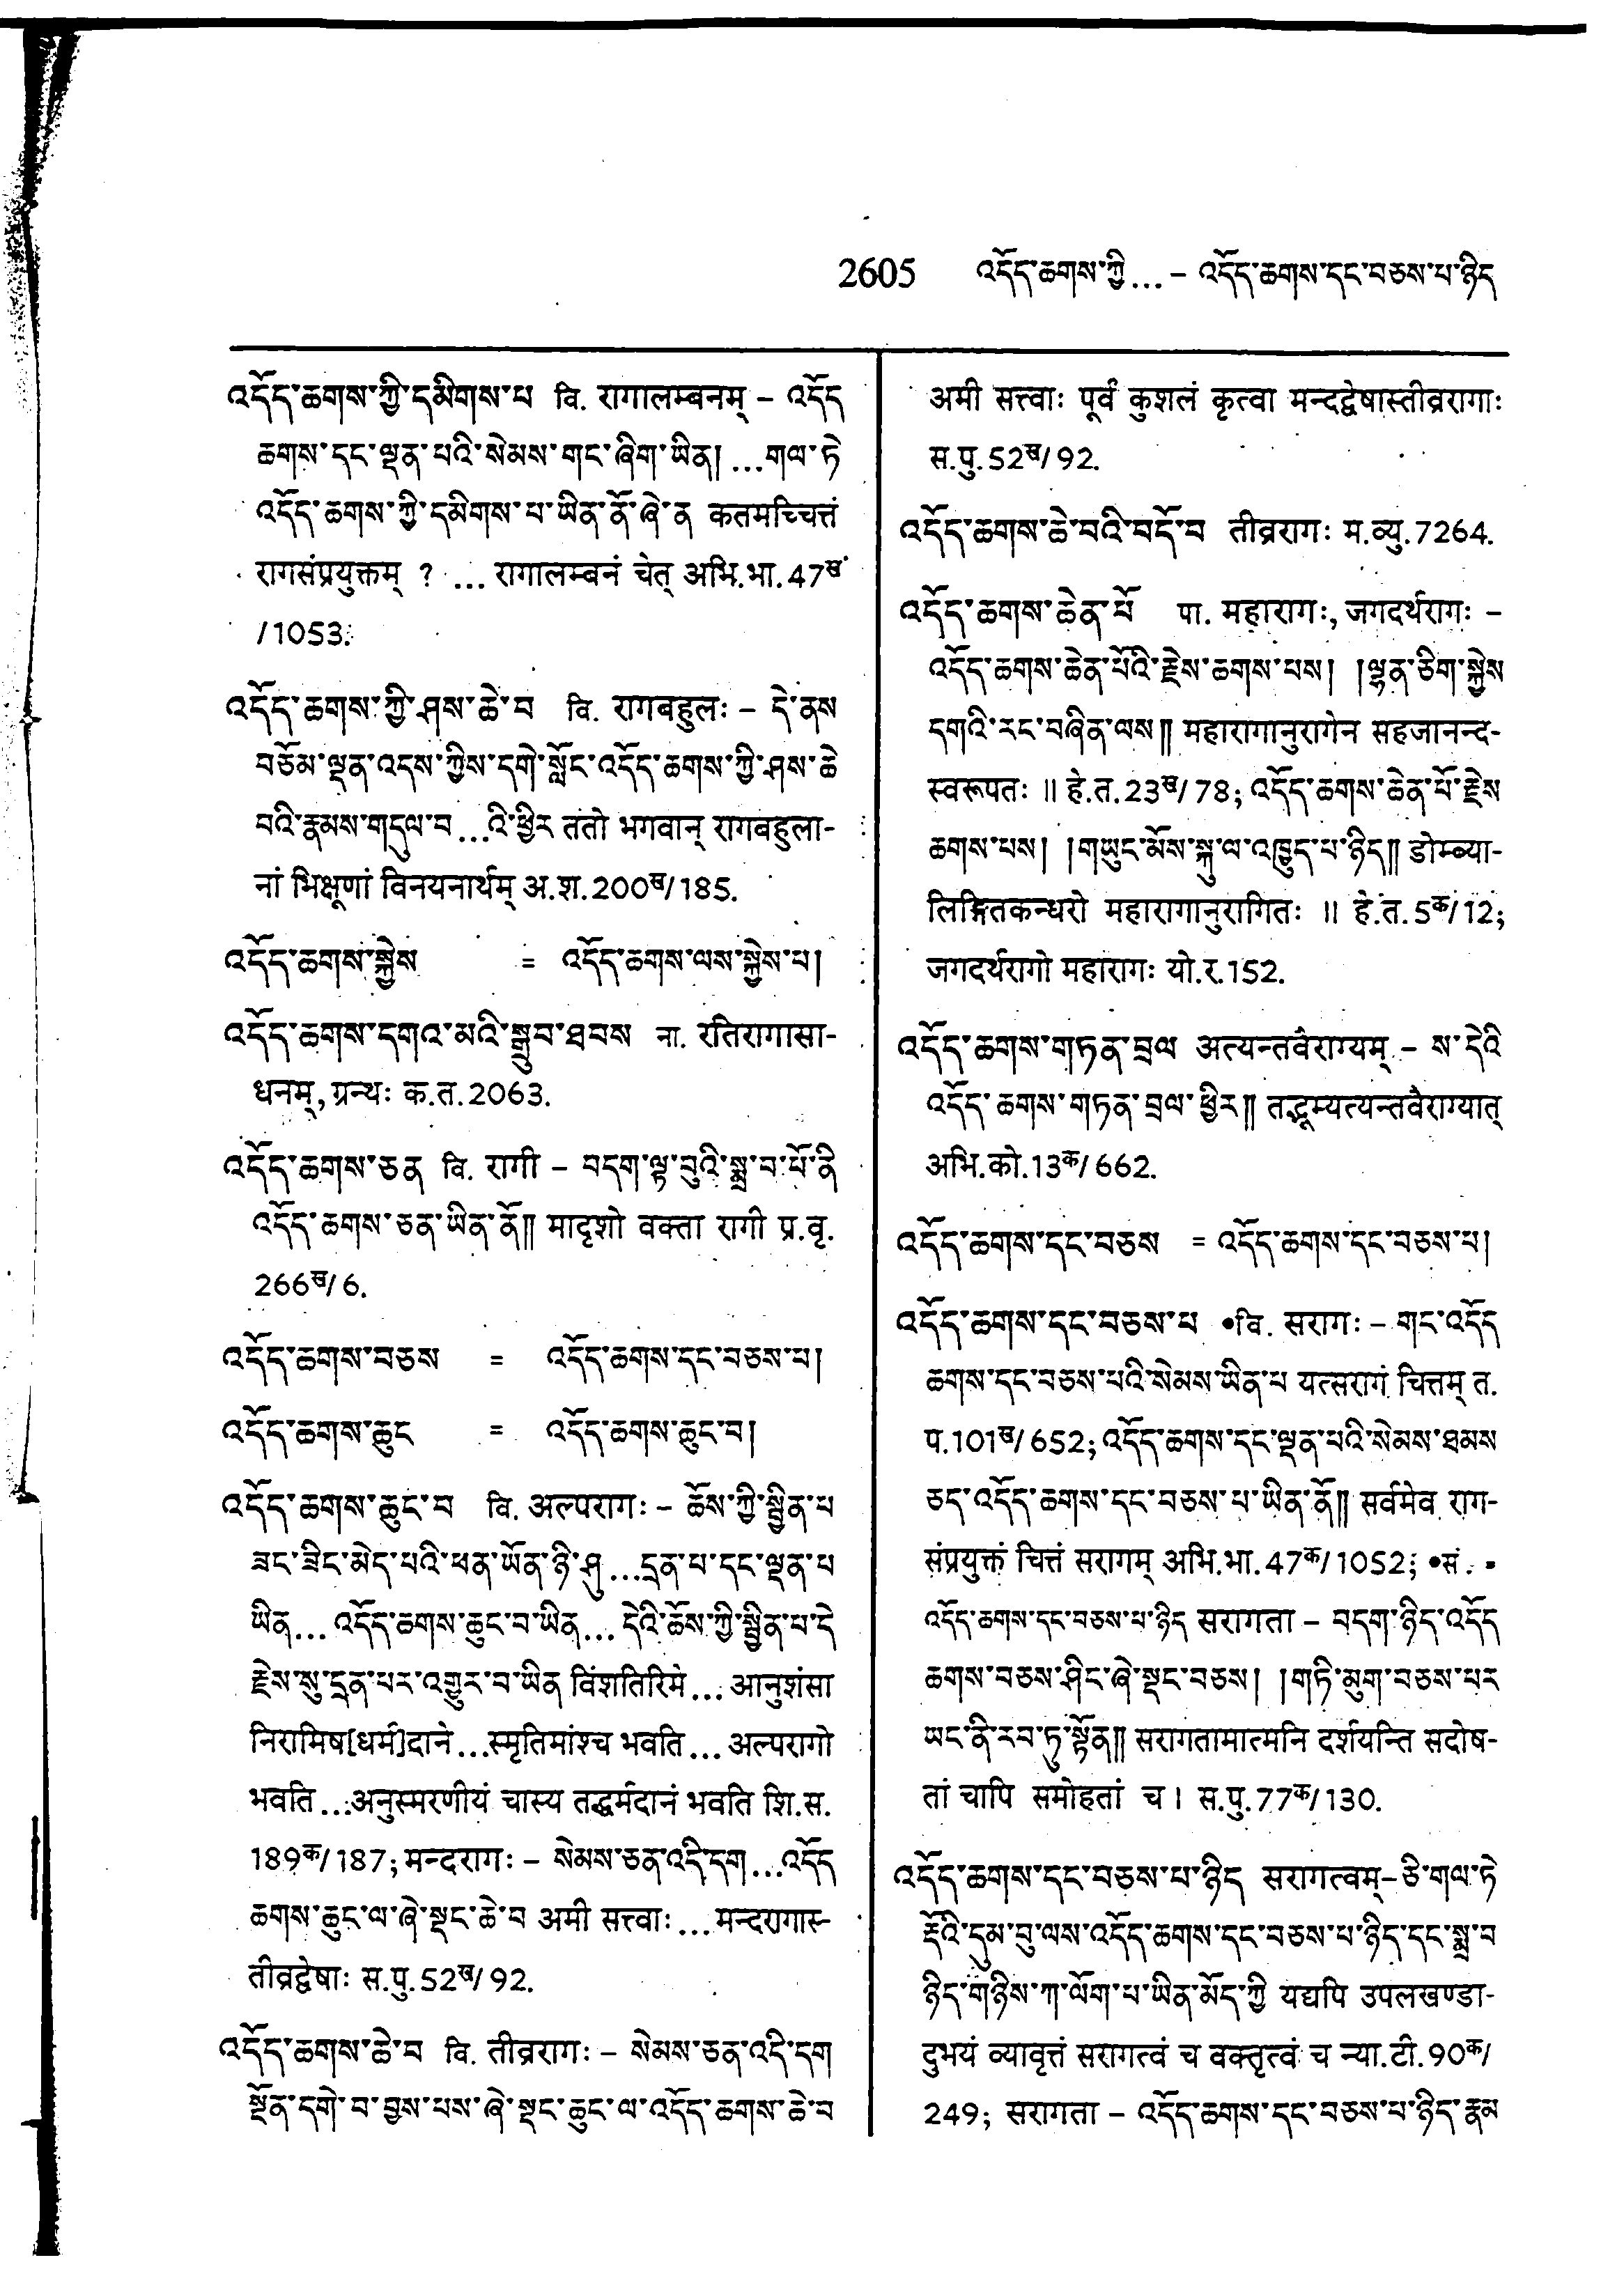 2605 འདོད་ཆགས་ཀྱི...– འདོད་ཆགས་དང་བཅས་པ་ཉིད
འདོད་ཆགས་ཀྱི་དམིགས་པ वि. रागालम्बनम् – འདོད
ཆགས་དང་ལྡན་པའི་སེམས་གང་ཞིག་ཡིན། ...གལ་ཏེ
འདོད་ཆགས་ཀྱི་དམིགས་པ་ཡིན་ནོ་ཞེ་ན कतमच्चित्तं
रागसंप्रयुक्तम् ? ... रागालम्बनं चेत् अभि.भा.47ख
/1053.
འདོད་ཆགས་ཀྱི་ཤས་ཆེ་བ वि. रागबहुलः – དེ་ནས
བཅོམ་ལྡན་འདས་ཀྱིས་དགེ་སློང་འདོད་ཆགས་ཀྱི་ཤས་ཆེ
བའི་རྣམས་གདུལ་བ...འི་ཕྱིར ततो भगवान् रागबहुला-
नां भिक्षूणां विनयनार्थम् अ.श.200ख/185.
འདོད་ཆགས་སྐྱེས = འདོད་ཆགས་ལས་སྐྱེས་པ།
འདོད་ཆགས་དགའ་མའི་སྒྲུབ་ཐབས ना. रतिरागासा-
धनम्, ग्रन्थः क.त.2063.
འདོད་ཆགས་ཅན वि. रागी – བདག་ལྟ་བུའི་སྨྲ་བ་པོ་ནི
འདོད་ཆགས་ཅན་ཡིན་ནོ༎ मादृशो वक्ता रागी प्र.वृ.
266ख/6.
འདོད་ཆགས་བཅས = འདོད་ཆགས་དང་བཅས་པ།
འདོད་ཆགས་ཆུང = འདོད་ཆགས་ཆུང་བ།
འདོད་ཆགས་ཆུང་བ वि. अल्परागः – ཆོས་ཀྱི་སྦྱིན་པ
ཟང་ཟིང་མེད་པའི་ཕན་ཡོན་ཉི་ཤུ...དྲན་པ་དང་ལྡན་པ
ཡིན... འདོད་ཆགས་ཆུང་བ་ཡིན... དེའི་ཆོས་ཀྱི་སྦྱིན་པ་དེ
རྗེས་སུ་དྲན་པར་འགྱུར་བ་ཡིན विंशतिरिमे... आनुशंसा
निरामिष[धर्म]दाने...स्मृतिमांश्च भवति... अल्परागो
भवति...अनुस्मरणीयं चास्य तद्धर्मदानं भवति शि.स.
189क/187; मन्दरागः – སེམས་ཅན་འདི་དག...འདོད
ཆགས་ཆུང་ལ་ཞེ་སྡང་ཆེ་བ अमी सत्त्वाः... मन्दरागास्-
तीव्रद्वेषाः स.पु.52ख/92.
འདོད་ཆགས་ཆེ་བ वि. तीव्ररागः – སེམས་ཅན་འདི་དག
སྔོན་དགེ་བ་བྱས་པས་ཞེ་སྡང་ཆུང་ལ་འདོད་ཆགས་ཆེ་བ
अमी सत्त्वाः पूर्वं कुशलं कृत्वा मन्दद्वेषास्तीव्ररागाः
स.पु.52ख/92.
འདོད་ཆགས་ཆེ་བའི་བདོ་བ तीव्ररागः म.व्यु.7264.
འདོད་ཆགས་ཆེན་པོ पा. महारागः, जगदर्थरागः –
འདོད་ཆགས་ཆེན་པོའི་རྗེས་ཆགས་པས། །ལྷན་ཅིག་སྐྱེས
དགའི་རང་བཞིན་ལས༎ महारागानुरागेन सहजानन्द-
स्वरूपतः ॥ हे.त.23ख/78; འདོད་ཆགས་ཆེན་པོ་རྗེས
ཆགས་པས། །གཡུང་མོས་སྐུ་ལ་འཁྱུད་པ་ཉིད༎ डोम्ब्या-
लिङ्गितकन्धरो महारागानुरागितः ॥ हे.त.5क/12;
जगदर्थरागो महारागः यो.र.152.
འདོད་ཆགས་གཏན་བྲལ अत्यन्तवैराग्यम् – ས་དེའི
འདོད་ཆགས་གཏན་བྲལ་ཕྱིར༎ तद्भूम्यत्यन्तवैराग्यात्
अभि.को.13क/662.
འདོད་ཆགས་དང་བཅས = འདོད་ཆགས་དང་བཅས་པ།
འདོད་ཆགས་དང་བཅས་པ •वि. सरागः – གང་འདོད
ཆགས་དང་བཅས་པའི་སེམས་ཡིན་པ यत्सरागं चित्तम् त.
प.101ख/652; འདོད་ཆགས་དང་ལྡན་པའི་སེམས་ཐམས
ཅད་འདོད་ཆགས་དང་བཅས་པ་ཡིན་ནོ༎ सर्वमेव राग-
संप्रयुक्तं चित्तं सरागम् अभि.भा.47क/1052; •सं. •
འདོད་ཆགས་དང་བཅས་པ་ཉིད सरागता – བདག་ཉིད་འདོད
ཆགས་བཅས་ཤིང་ཞེ་སྡང་བཅས། །གཏི་མུག་བཅས་པར
ཡང་ནི་རབ་ཏུ་སྟོན༎ सरागतामात्मनि दर्शयन्ति सदोष-
तां चापि समोहतां च। स.पु.77क/130.
འདོད་ཆགས་དང་བཅས་པ་ཉིད सरागत्वम्–ཅི་གལ་ཏེ
རྡོའི་དུམ་བུ་ལས་འདོད་ཆགས་དང་བཅས་པ་ཉིད་དང་སྨྲ་བ
ཉིད་གཉིས་ཀ་ལོག་པ་ཡིན་མོད་ཀྱི यद्यपि उपलखण्डा-
दुभयं व्यावृत्तं सरागत्वं च वक्तृत्वं च न्या.टी.90क/
249; सरागता – འདོད་ཆགས་དང་བཅས་པ་ཉིད་རྣམ